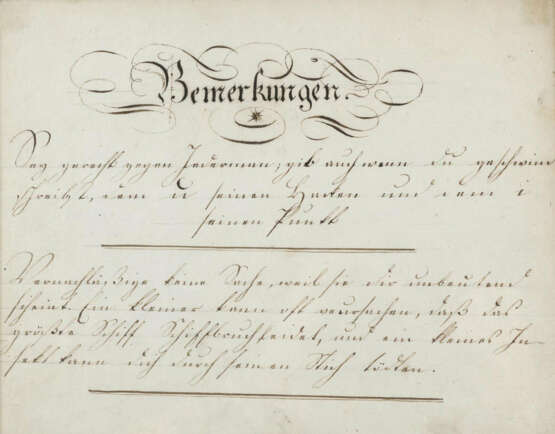 Bemerkungen.
Sey gerecht gegen Jederman, gib auch wenn du geschwind
schreibst, dem u seinen Hacken und dem i
seinen Punkt
Vernachläßige keine Sache, weil sie dir unbeutend
scheint. Ein kleiner kann oft verursachen, daß das
größte Schiff Schiffbruch leidet, und ein kleines In-
sekt kann dich durch seinen Stich tödten.